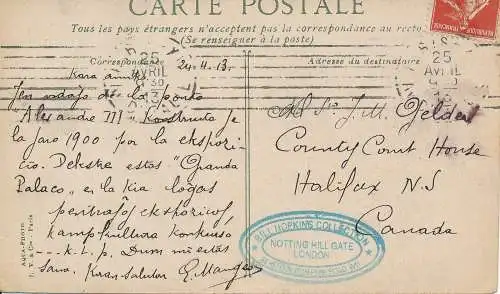 CARTE POSTALE
Tous les pays étrangers n'acceptent pas la correspondance au recto
(Se renseigner à la poste)
Correspondance
Adresse du destinataire
25
AVRIL
25
AVRIL
24.4.13.
Kara amiko
Jen vidajo de la ponto
Alexandre III Konstructo je
la jaro 1900 por la ekspozi-
cio. Dekstre estas "Granda
Palaco" en la kia logas
pentraĵoj ekspozicioj
kampkultura konkurso
... k.t.p. Dum mi estas
sana. Koran saluton E. Manger
Mr J. M. Gelder
County Court House
Halifax N.S
Canada
BILL HOPKINS COLLECTION
NOTTING HILL GATE
LONDON
AQUA-PHOTO
L. V. & Cie - Paris